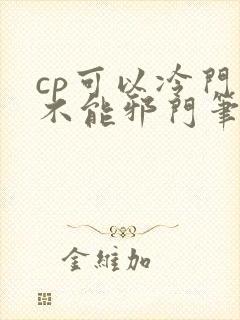 cp可以冷門
不能邪門筆
金維加